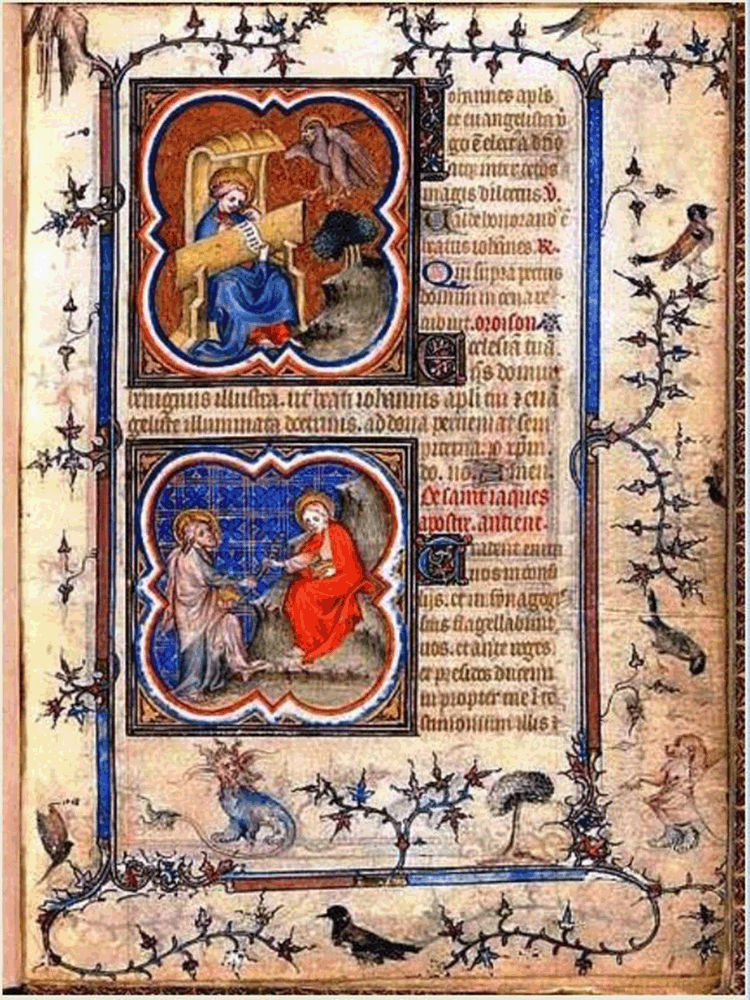 Johannes apls
et euangelista v̄
go ē electa a dño
magis dilectus. V.
Valde honorand' ē
beatus iohānes. R.
Qui supra pectus
domini in cena re
cubuit. oroison
Ecclesiā tuā.
qs domine
benignus illustra. ut beati iohannis apli tui ⁊ euā
geliste illuminata doctrinis. ad dona perueniat sem
piterna. p xpm.
do. no. Amen.
De saint iaques
apostre. antiene.
Tradent enim
uos in consi
lijs. et in synagogis
suis flagellabunt
uos. et ante reges
et presides ducemi
ni propter me ī tes
timonium illis ⁊